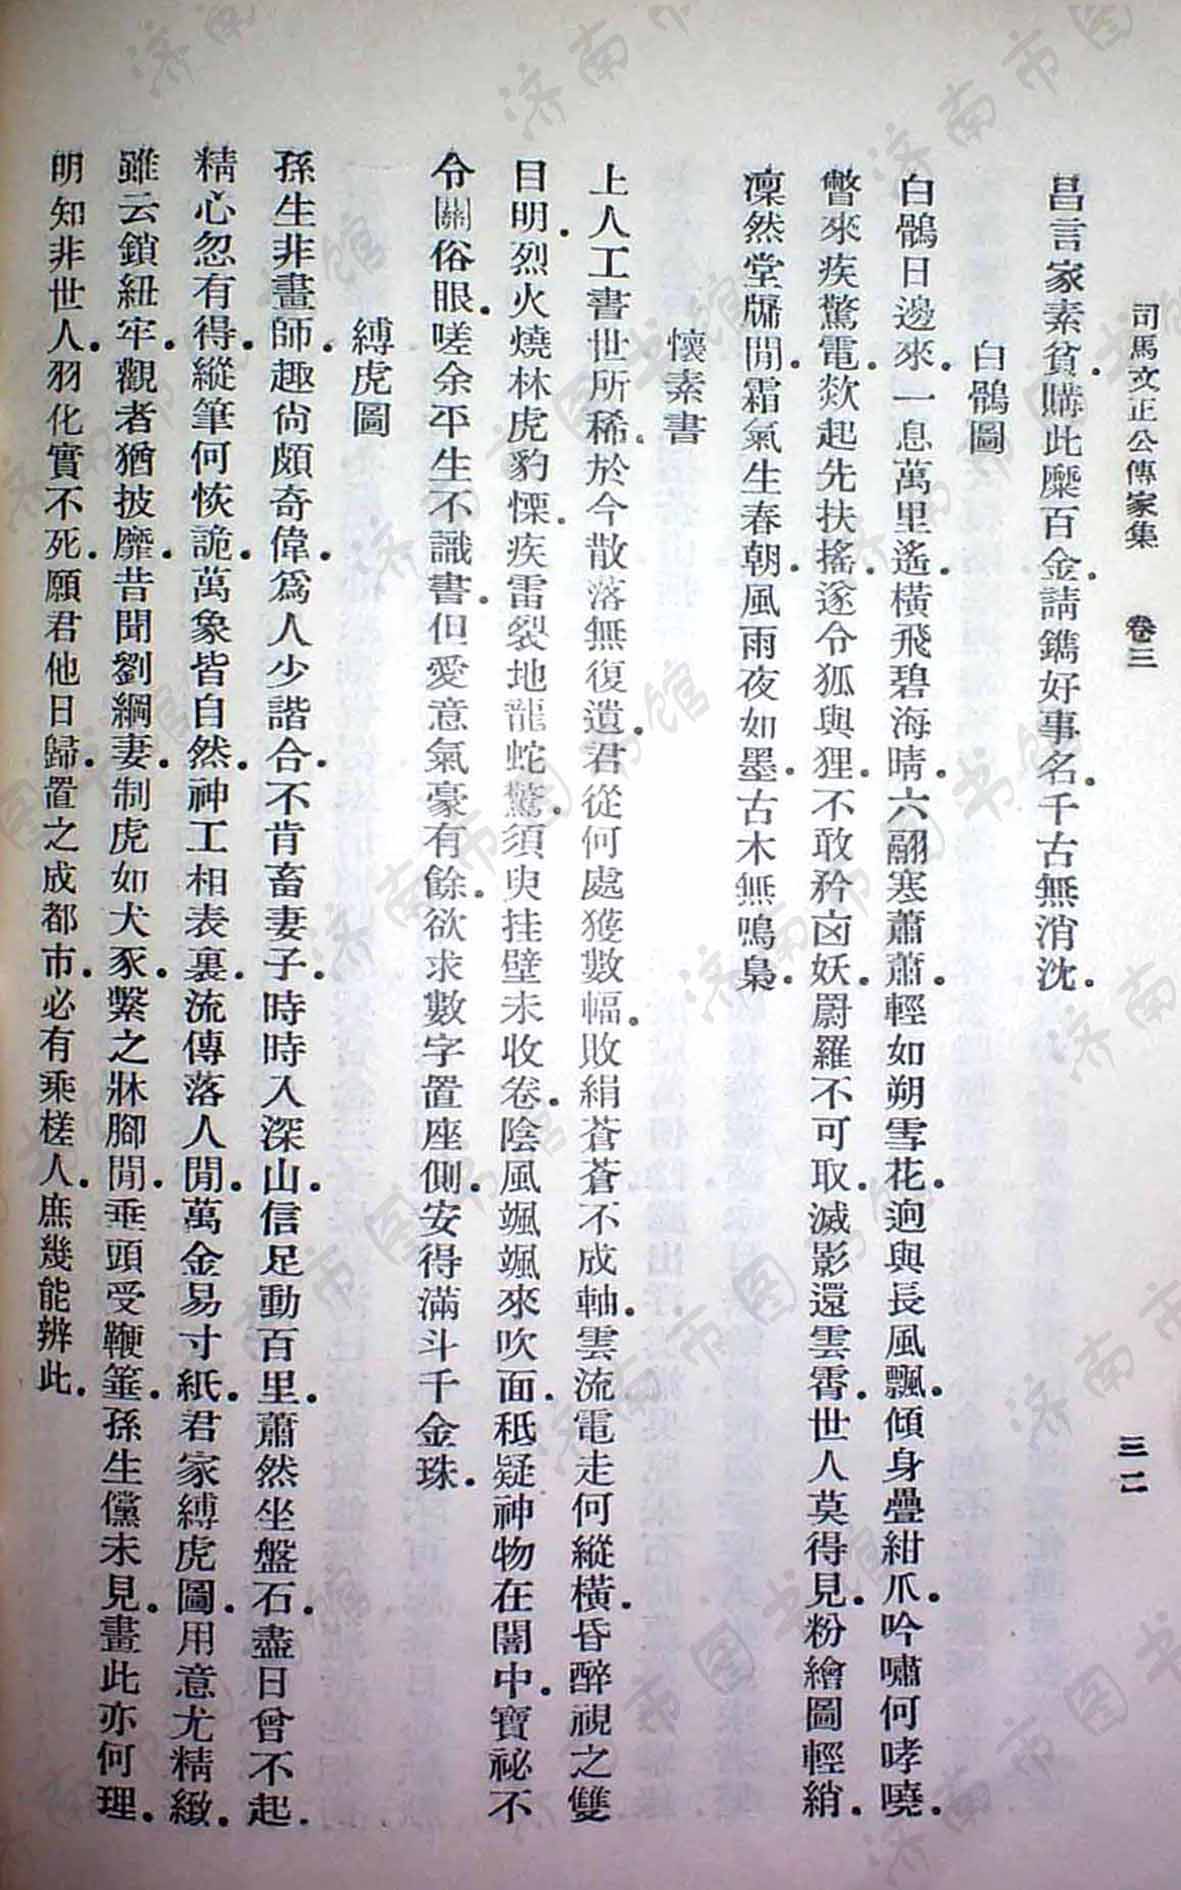 司馬文正公傳家集　卷三　三二
昌言家素貧。購此糜百金。請鐫好事名。千古無消沈。
白鶻圖
白鶻日邊來。一息萬里遙。橫飛碧海晴。六翮寒蕭蕭。輕如朔雪花。逈與長風飄。傾身疊紺爪。吟嘯何哮嘵。
瞥來疾驚電。欻起先扶搖。遂令狐與狸。不敢矜凶妖。罻羅不可取。滅影還雲霄。世人莫得見。粉繪圖輕綃。
凜然堂牖閒。霜氣生春朝。風雨夜如墨。古木無鳴梟。
懷素書
上人工書世所稀。於今散落無復遺。君從何處獲數幅。敗絹蒼蒼不成軸。雲流電走何縱橫。昏醉視之雙
目明。烈火燒林虎豹慄。疾雷裂地龍蛇驚。須臾挂壁未收卷。陰風颯颯來吹面。秖疑神物在闇中。寶祕不
令關俗眼。嗟余平生不識書。但愛意氣豪有餘。欲求數字置座側。安得滿斗千金珠。
縛虎圖
孫生非畫師。趣尙頗奇偉。爲人少諧合。不肯畜妻子。時時入深山。信足動百里。蕭然坐盤石。盡日曾不起。
精心忽有得。縱筆何恢詭。萬象皆自然。神工相表裏。流傳落人閒。萬金易寸紙。君家縛虎圖。用意尤精緻。
雖云鎖紐牢。觀者猶披靡。昔聞劉綱妻。制虎如犬豕。繫之牀腳閒。垂頭受鞭箠。孫生儻未見。畫此亦何理。
明知非世人。羽化實不死。願君他日歸。置之成都市。必有乘槎人。庶幾能辨此。
济南市图书馆